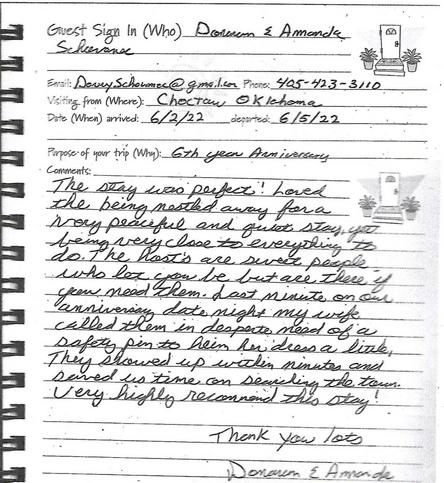 Guest Sign In (Who) Donavan & Amanda
Email: @gmail.com Phone: 405-423-3110
Visiting from (Where): Choctaw Oklahoma
Date (When) arrived: 6/2/22 departed: 6/5/22
Purpose of your trip (Why): 6th year Anniversary
Comments:
The stay was perfect! Loved
the being nestled away for a
very peaceful and quiet stay, yet
being very close to everything to
do. The host's are sweet people
who let you be but are there if
you need them. Last minute on our
anniversary date night my wife
called them in desperate need of a
safety pin to hem her dress a little,
They showed up within minutes and
saved us time on searching the town.
Very highly recommend this stay!
Thank you lots
Donavan & Amanda